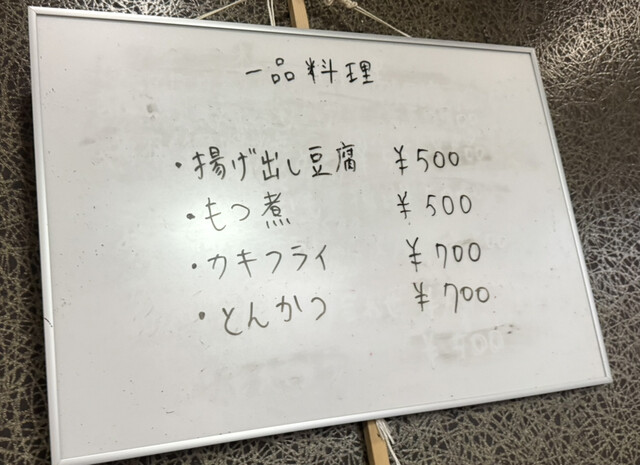 一品料理
・揚げ出し豆腐 ¥500
・もつ煮 ¥500
・カキフライ ¥700
・とんかつ ¥700